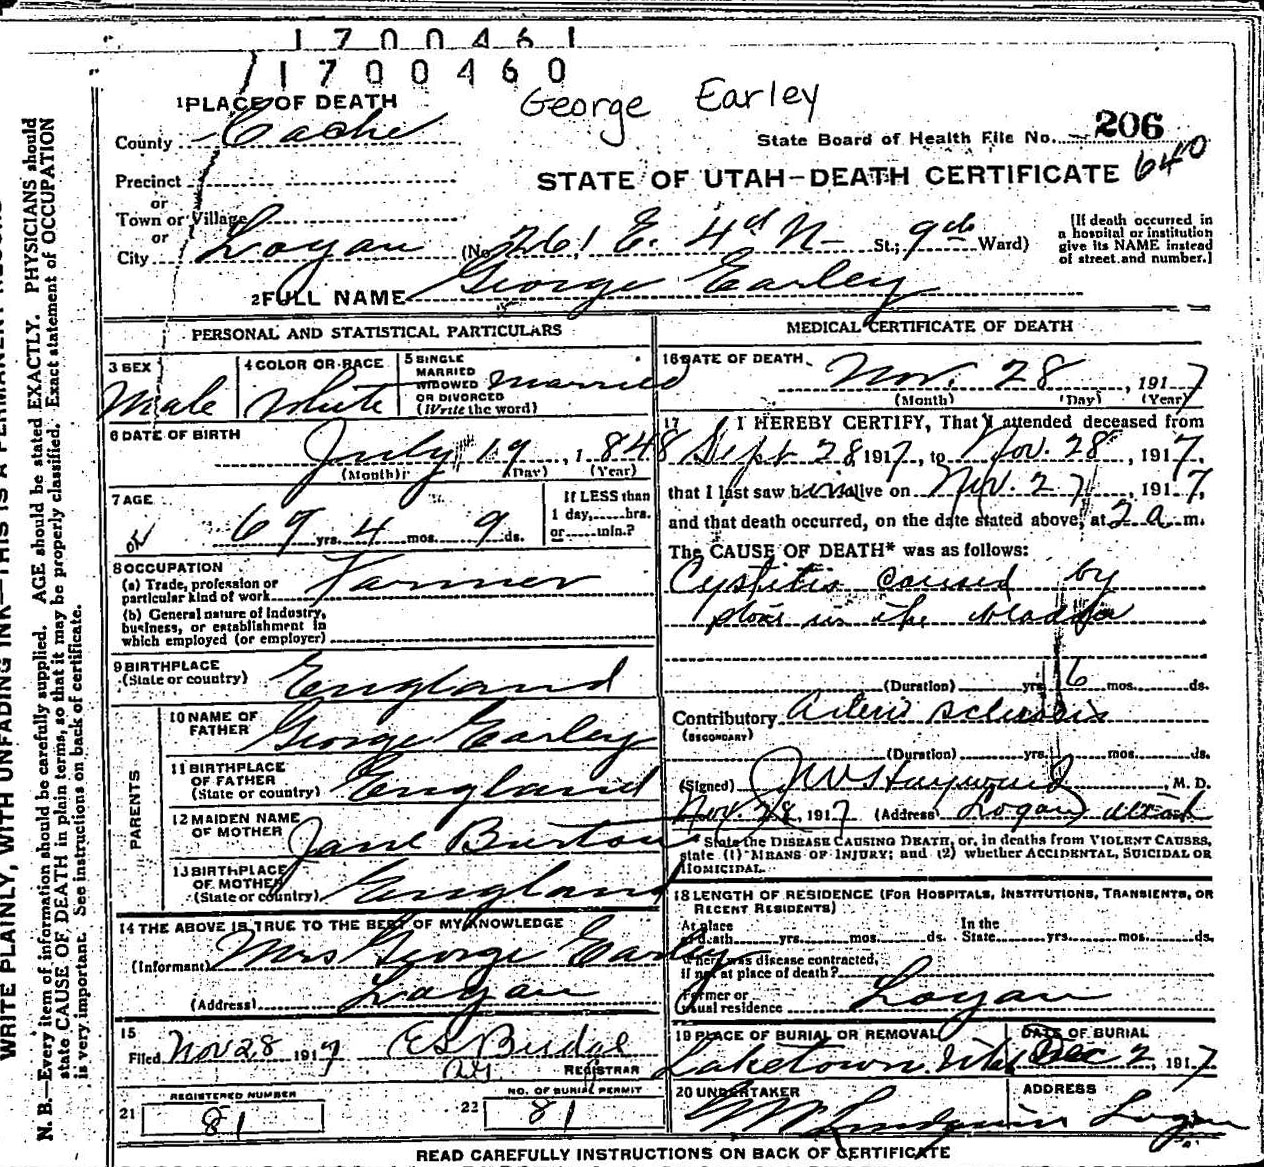 1700461
1700460
George Earley
1 PLACE OF DEATH
County Cache
State Board of Health File No. 206
640
Precinct
or
Town or Village
or
City Logan (No. 261 E. 4th N St.; 9th Ward)
STATE OF UTAH—DEATH CERTIFICATE
[If death occurred in
a hospital or institution
give its NAME instead
of street and number.]
2 FULL NAME George Earley
PERSONAL AND STATISTICAL PARTICULARS
3 SEX
Male
4 COLOR OR RACE
White
5 SINGLE
MARRIED
WIDOWED
OR DIVORCED
(Write the word)
Married
6 DATE OF BIRTH
July 19, 1848
(Month) (Day) (Year)
7 AGE
69 yrs. 4 mos. 9 ds.
If LESS than
1 day,......hrs.
or......min.?
8 OCCUPATION
(a) Trade, profession or
particular kind of work Farmer
(b) General nature of industry,
business, or establishment in
which employed (or employer)
9 BIRTHPLACE
(State or country) England
PARENTS
10 NAME OF
FATHER George Earley
11 BIRTHPLACE
OF FATHER
(State or country) England
12 MAIDEN NAME
OF MOTHER Jane Burton
13 BIRTHPLACE
OF MOTHER
(State or country) England
14 THE ABOVE IS TRUE TO THE BEST OF MY KNOWLEDGE
(Informant) Mrs George Earley
(Address) Logan
15
Filed Nov 28 1917
REGISTRAR
REGISTERED NUMBER
21 81
NO. OF BURIAL PERMIT
22 81
MEDICAL CERTIFICATE OF DEATH
16 DATE OF DEATH
Nov. 28, 1917
(Month) (Day) (Year)
17 I HEREBY CERTIFY, That I attended deceased from
Sept 28 1917, to Nov. 28, 1917,
that I last saw him alive on Nov. 27, 1917,
and that death occurred, on the date stated above, at 2 a m.
The CAUSE OF DEATH* was as follows:
Cystitis caused by
stone in the bladder
(Duration) yrs. 6 mos. ds.
Contributory Arterio sclerosis
(SECONDARY)
(Duration) yrs. mos. ds.
(Signed) Hayward, M. D.
Nov. 28, 1917 (Address) Logan Utah
* State the DISEASE CAUSING DEATH, or, in deaths from VIOLENT CAUSES,
state (1) MEANS OF INJURY; and (2) whether ACCIDENTAL, SUICIDAL OR
HOMICIDAL.
18 LENGTH OF RESIDENCE (FOR HOSPITALS, INSTITUTIONS, TRANSIENTS, OR
RECENT RESIDENTS)
At place
of death yrs. mos. ds.
In the
State yrs. mos. ds.
Where was disease contracted,
if not at place of death?
Former or
usual residence Logan
19 PLACE OF BURIAL OR REMOVAL
Laketown Utah
DATE OF BURIAL
Dec 2, 1917
20 UNDERTAKER
ADDRESS
Logan
READ CAREFULLY INSTRUCTIONS ON BACK OF CERTIFICATE
WRITE PLAINLY, WITH UNFADING INK—THIS IS A PERMANENT RECORD
N. B.—Every item of information should be carefully supplied. AGE should be stated EXACTLY. PHYSICIANS should
state CAUSE OF DEATH in plain terms, so that it may be properly classified. Exact statement of OCCUPATION
is very important. See instructions on back of certificate.